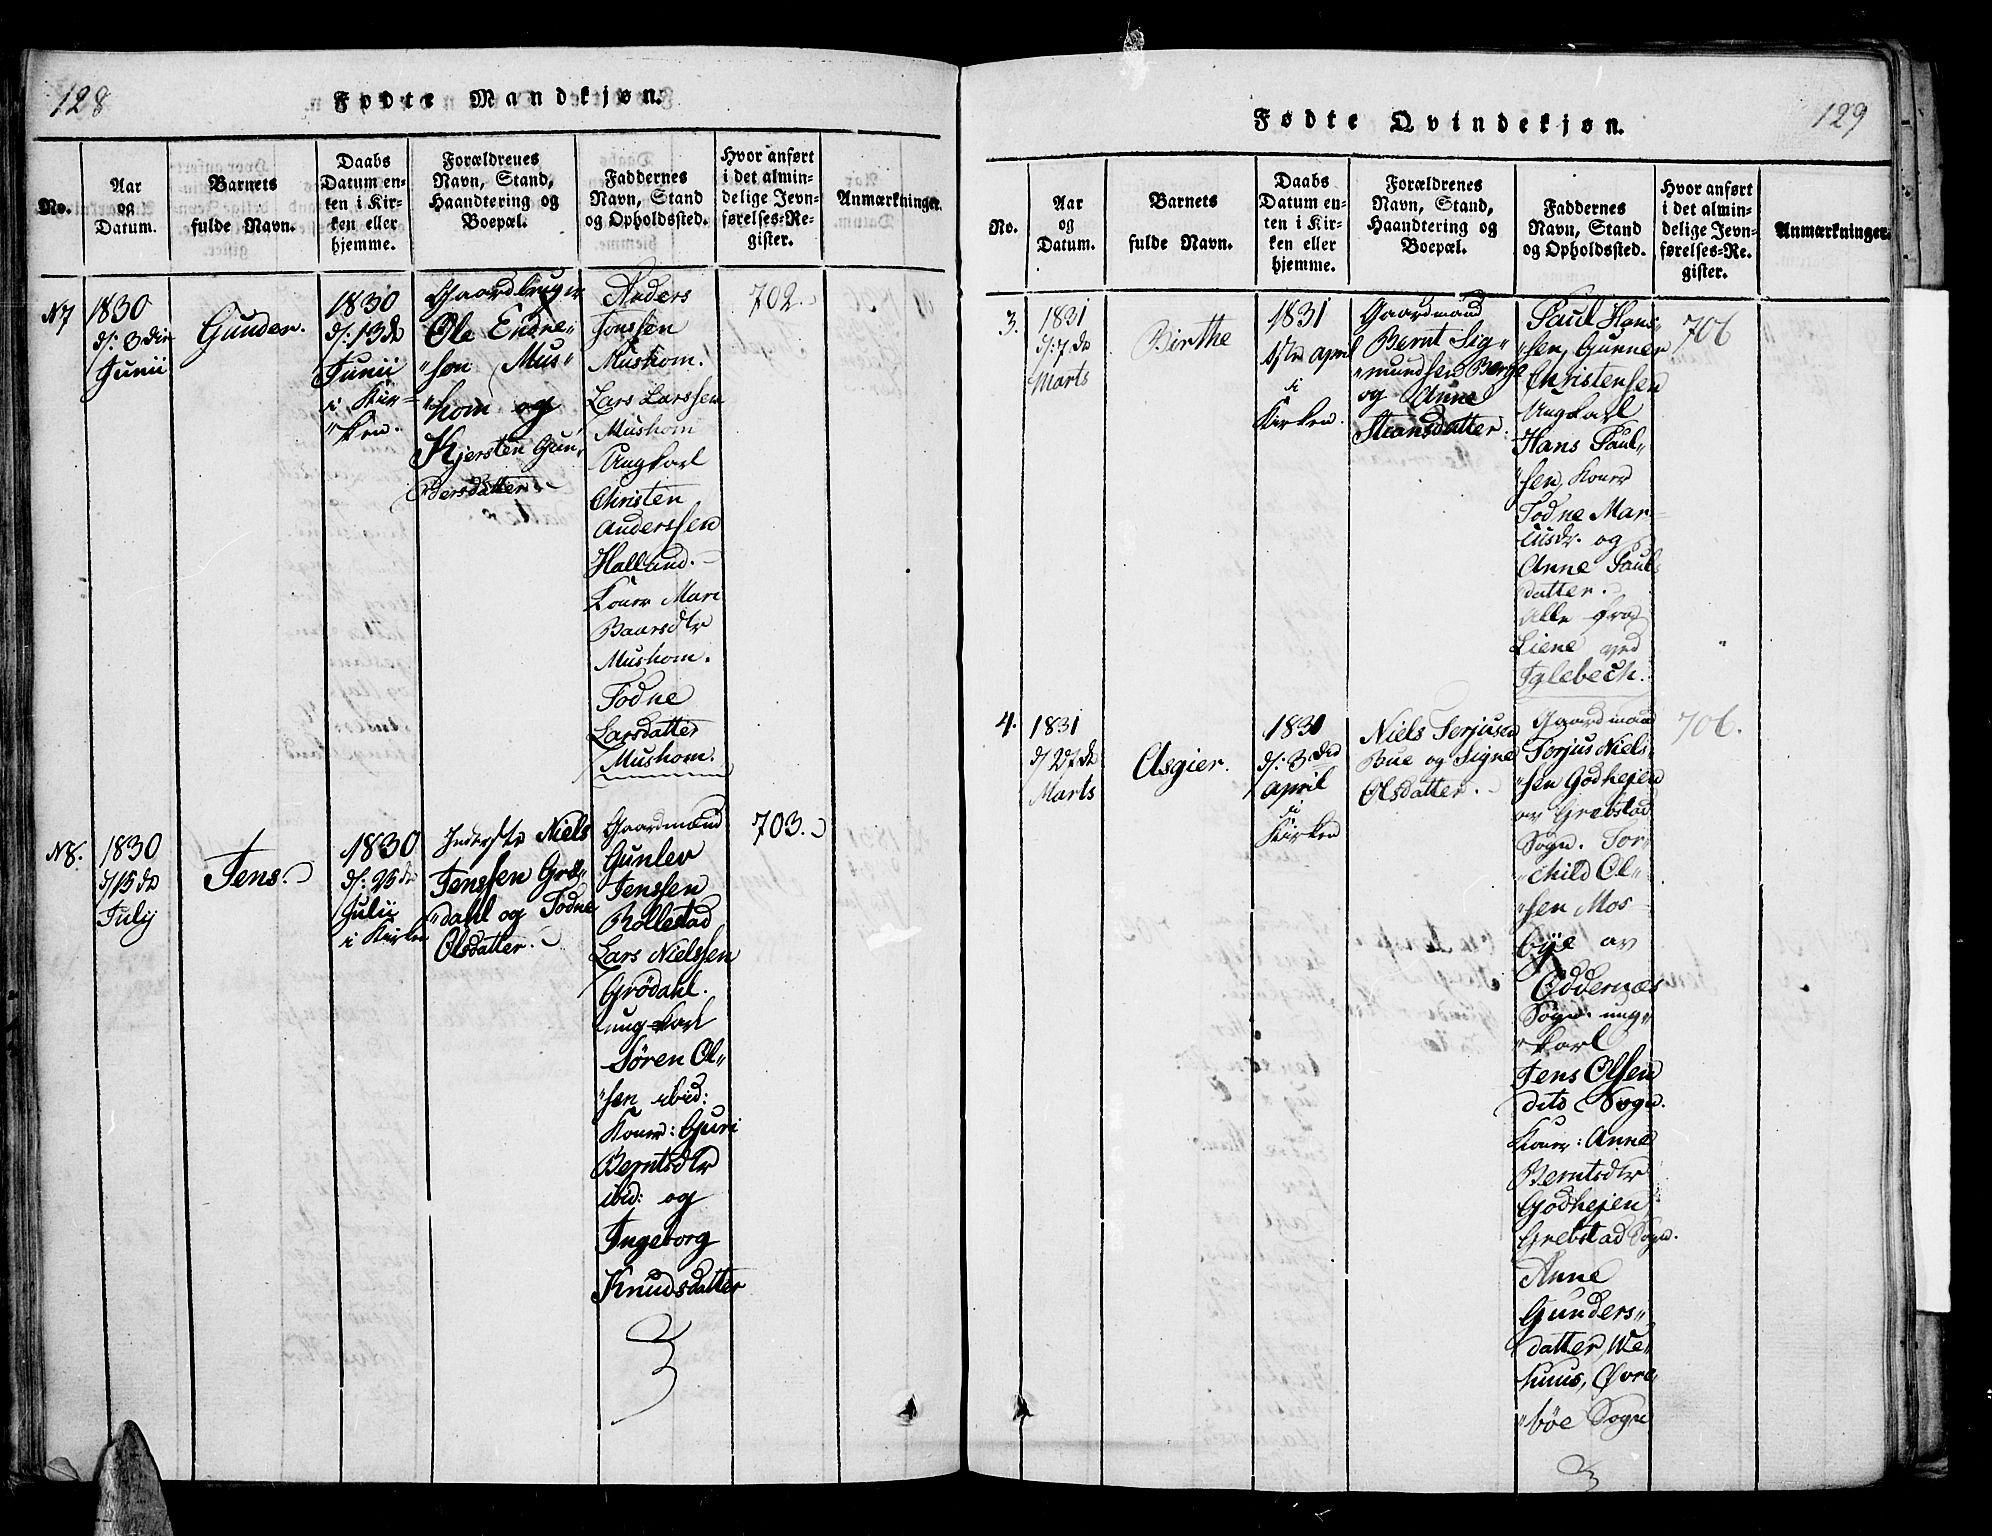 128
Fødte Mandkjøn.
No.
Aar
og
Datum.
Barnets
fulde Navn.
Daabs
Datum en-
ten i Kir-
ken eller
hjemme.
Forældrenes
Navn, Stand,
Haandtering og
Boepæl.
Faddernes
Navn, Stand
og Opholdssted.
Hvor anført
i det almin-
delige Jevn-
førelses-Re-
gister.
Anmærkninger.
N7
1830
d: 3die
Junii
Gunder.
1830
d: 13de
Junii
i Kir-
"ken.
Gaardbruger
Ole Endre"
"sen Mus"
"hom og
Kjersten Gun"
"dersdatter.
Anders
Jonssen
Mushom.
Lars Larssen
Mushom
Ungkarl
Christen
Anderssen
Halland.
Koner Mari
Baarsdtr
Mushom.
Todne
Larsdatter
Mushom.
702.
N8.
1830
d/15de
July
Jens.
1830
d: 25de
Julii
i Kirken
Inderste Niels
Jenssen Grö"
"dahl og Todne
Olsdatter.
Gaardmand
Gunlev
Jenssen
Rollestad
Lars Nielssen
Grödahl.
ung karl
Sören Ol"
"sen ibid:
Koner: Guri
Berntsdtr
ibid: og
Ingeborg
Knudsdatter
703.
129
Fødte Qvindekjøn.
No.
Aar
og
Datum.
Barnets
fulde Navn.
Daabs
Datum en-
ten i Kir-
ken eller
hjemme.
Forældrenes
Navn, Stand,
Haandtering og
Boepæl.
Faddernes
Navn, Stand
og Opholdssted.
Hvor anført
i det almin-
delige Jevn-
førelses-Re-
gister.
Anmærkninger.
3.
1831
d: 7de
Marts
Birthe
1831
1ste April
i
Kirken.
Gaardmand
Bernt Sig"
"mundsen Berge
og Anne
Stiansdatter.
Paul Han"
"sen, Gunner
Christensen
Ungkarl
Hans Paul"
"sen, Koner
Todne Mar-
cusdr. og
Anne Pauls
datter.
Alle fra
Liene ved
Iglebech.
706
4.
1831
d/27de
Marts
Asgier.
1831
d: 3die
April
i
Kirken
Niels Terjusen
Bue og Signe
Olsdatter.
Gaardmand
Torjus Niel"
"sen Godhejen
av Grebstad
Sogn. Tor-
"child Ol"
"sen Mos-
bye av
Oddernæs
Sogn. ung"
"karl
Jens Olsen
dito Sogn.
Koner: Anne
Berntsdtr
Godhejen
Grebstad Sogn.
Anne
Gunders"
datter, We"
huus, Øvre"
"bøe Sogn
706.